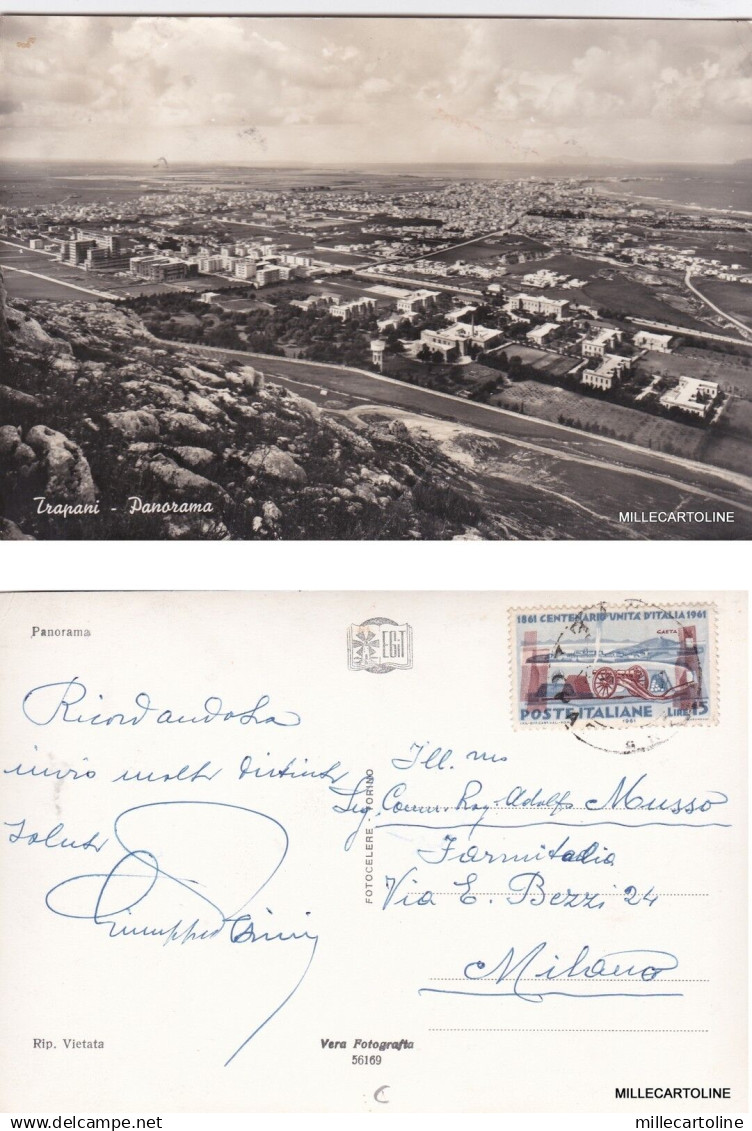 Trapani - Panorama
MILLECARTOLINE
Panorama
EGIT
1861 CENTENARIO UNITA' D'ITALIA 1961
GAETA
POSTE ITALIANE LIRE 15
1961
Ricordandola
invio molti distinti
saluti
Giuseppe
FOTOCELERE TORINO
Ill. mo
Sig. Comm. Rag. Adolfo Musso
Farmitalia
Via E. Bezzi 24
Milano
Rip. Vietata
Vera Fotografia
56169
C
MILLECARTOLINE
millecartoline
delcampe.net